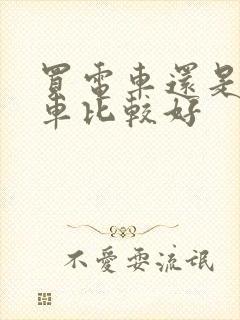 買電車還是
車比較好
不愛耍流氓